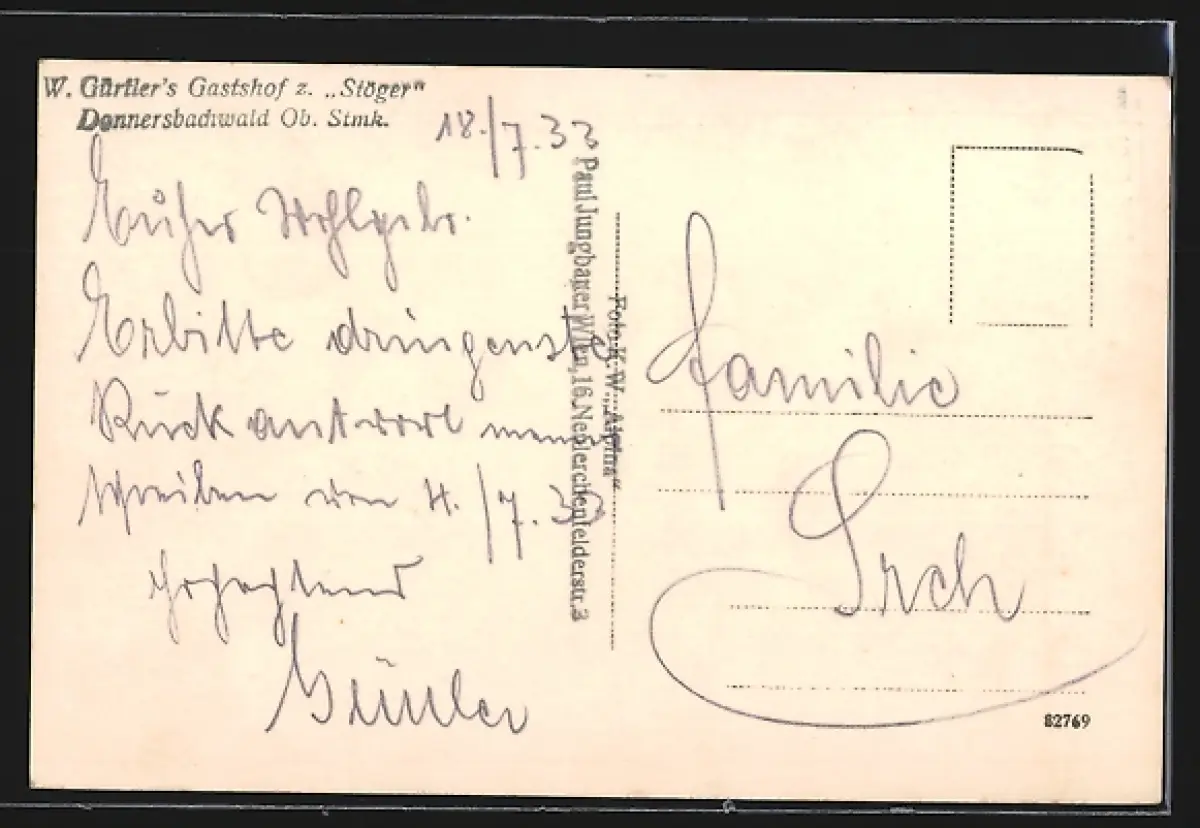 W. Gürtler's Gastshof z. „Stöger"
Donnersbachwald Ob. Stmk.
18./7. 33
Euer Wohlgeb.
Erbitte dringenst
Rückantwort meine
Schreiben von 4./7. 33
Hochachtend
Gürtler
Paul Jungbauer Wien, 16. Neulerchenfelderstr. 3
Foto K. W. „Alpina"
Familie
Srch
82769